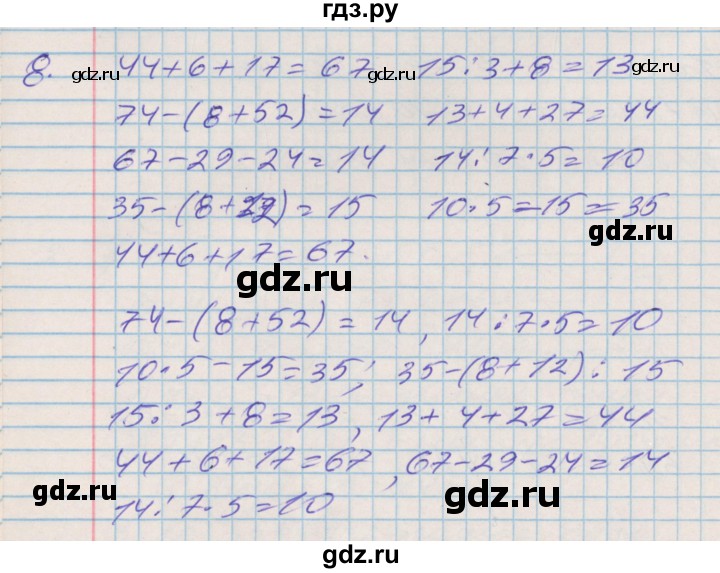 гдз.ру
8. 44+6+17=67 15:3+8=13
gdz.ru gdz.ru gdz.ru gdz.ru
74-(8+52)=14 13+4+27=44
67-29-24=14 14:7·5=10
35-(8+12)=15 10·5=-15=35
gdz.ru
44+6+17=67.
gdz.ru
74-(8+52)=14, 14:7·5=10
10·5-15=35; 35-(8+12): 15
15:3+8=13, 13+4+27=44
44+6+17=67, 67-29-24=14
gdz.ru gdz.ru
14:7·5=10
gdz.ru